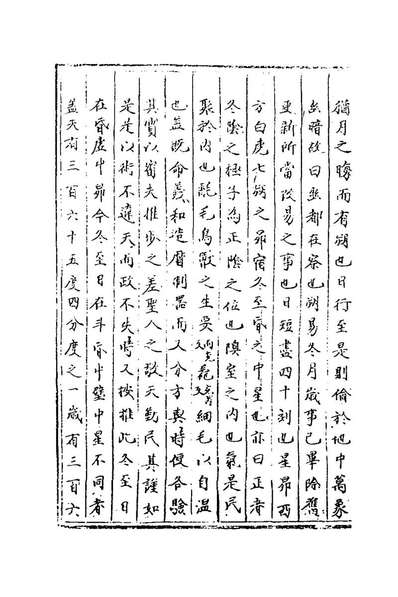 猶月之晦而有朔也日行至是則淪於地中萬象
幽暗故曰幽都在察也朔易冬月歲事已畢除舊
更新所當改易之事也日短晝四十刻也星昴西
方白虎七宿之昴宿冬至昏之中星也亦曰正者
冬陰之極子為正陰之位也隩室之内也氣寒民
聚於内也氄毛鳥獸之生耎毳細毛以自温
也蓋既命羲和造曆制器而又分方與時使各驗
其實以審夫推步之差聖人之敬天勤民其謹如
是是以術不違天而政不失時也又按此冬至日
在虚昏中昴今冬至日在斗昏中壁中星不同者
蓋天有三百六十五度四分度之一歲有三百六